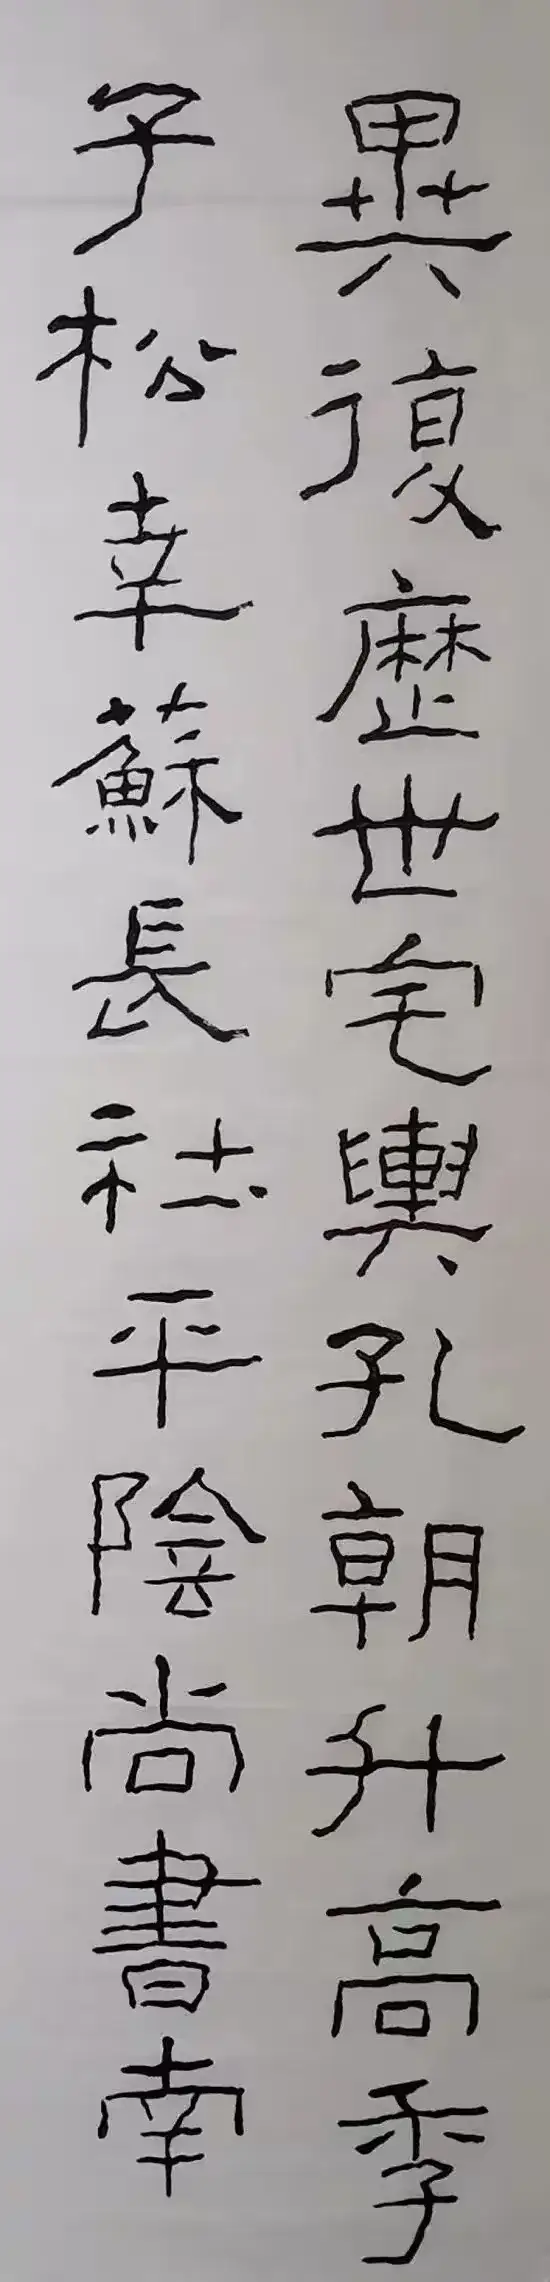 異復歷世宅輿孔朝升高季
子松幸蘇長社平陰尚書南